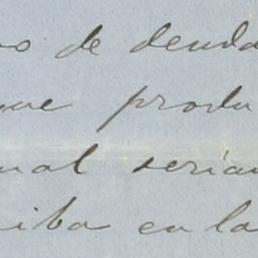 o de deuda
ue produ
ual serian
iba en la